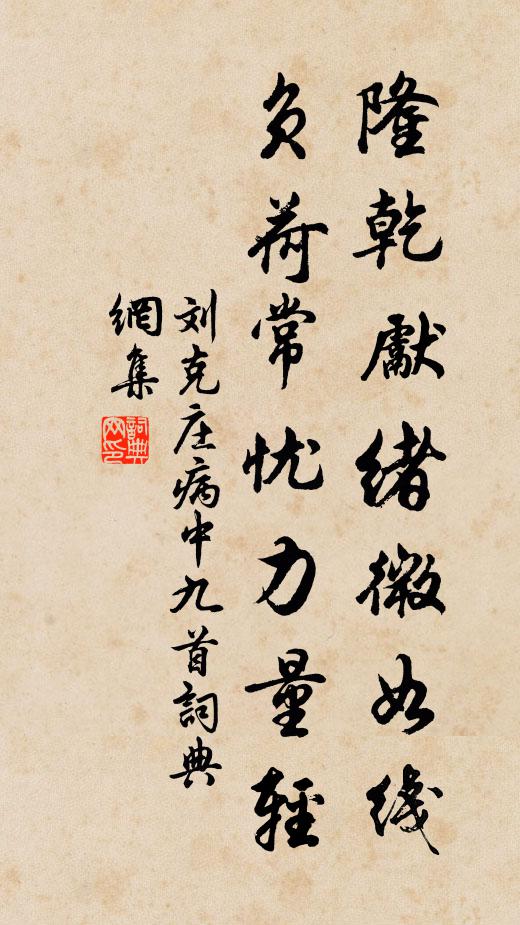 隆乾獻緒微如线
负荷常忧力量輕
刘克庄病中九首詞典
網集
詞典網印